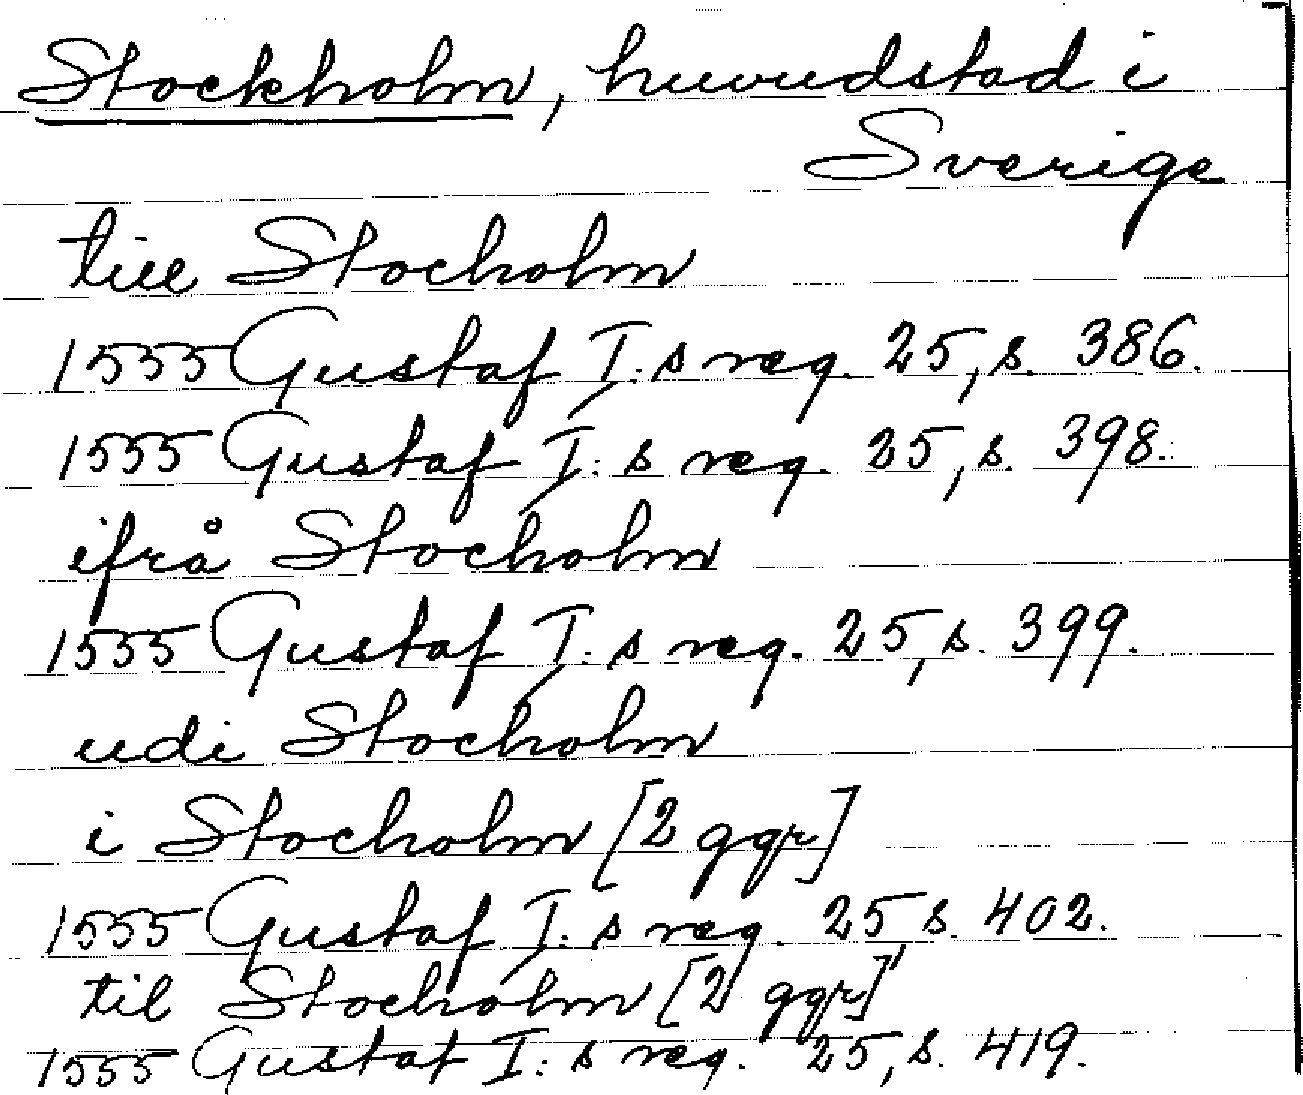 Stockholm, huvudstad i
Sverige
till Stocholm
1555 Gustaf I:s reg. 25, s. 386.
1555 Gustaf I:s reg. 25, s. 398.
ifrå Stocholm
1555 Gustaf I:s reg. 25, s. 399.
udi Stocholm
i Stocholm [2 ggr]
1555 Gustaf I:s reg. 25, s. 402.
til Stocholm [2 ggr]
1555 Gustaf I:s reg. 25, s. 419.